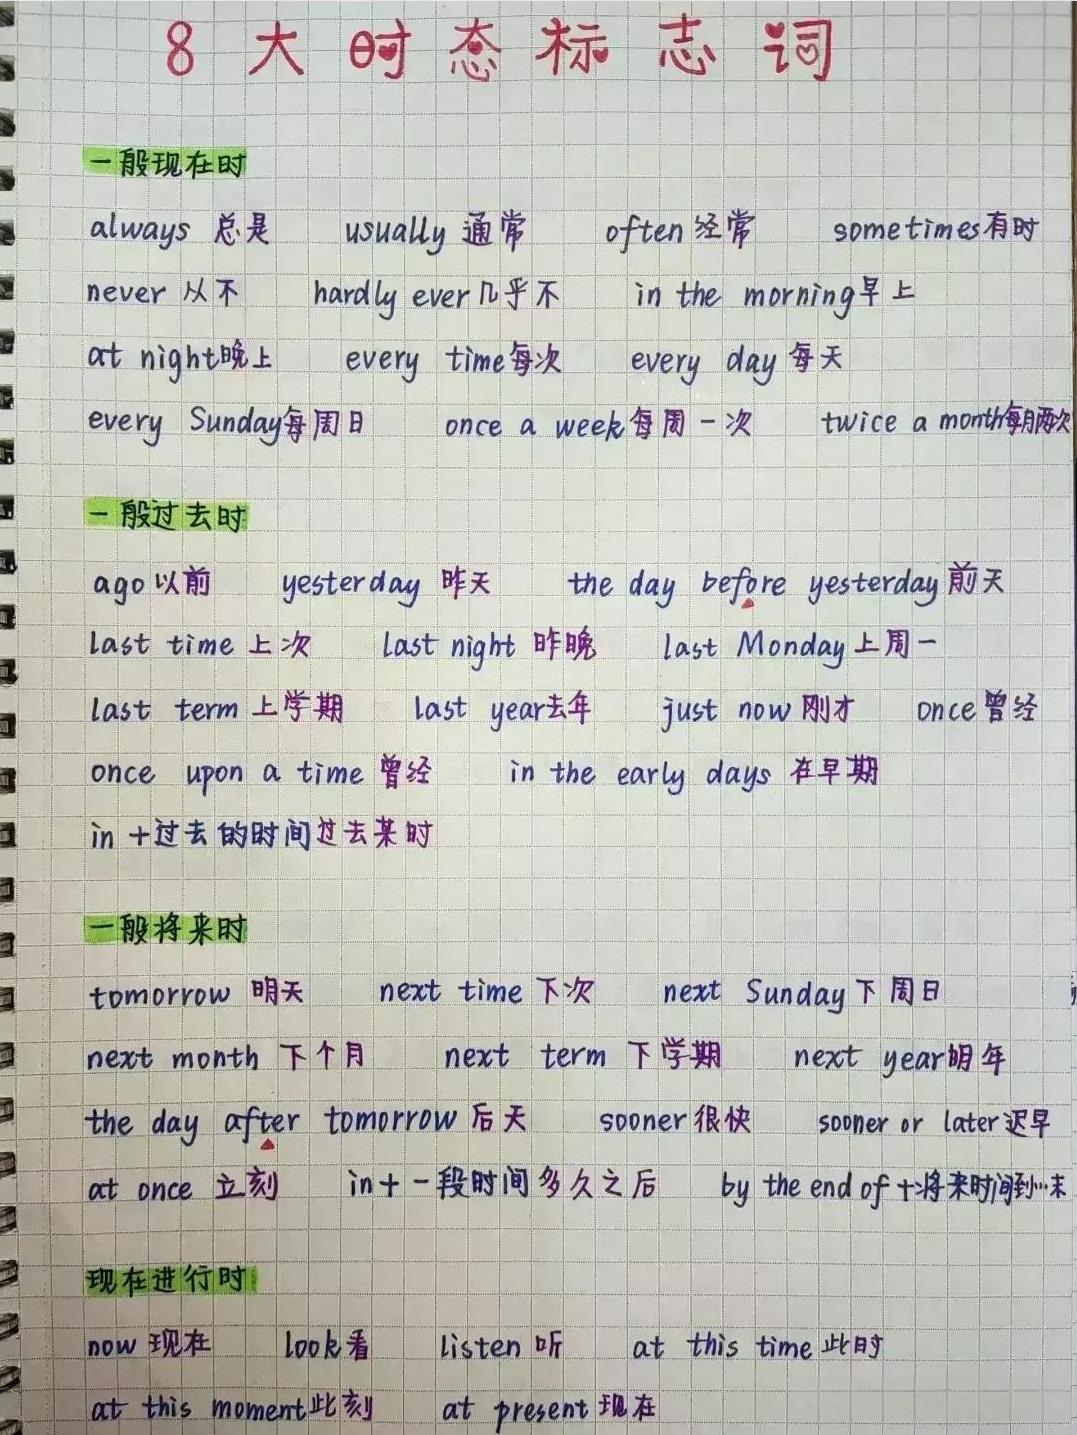 8大时态标志词
一般现在时
always 总是 usually 通常 often 经常 sometimes 有时
never 从不 hardly ever 几乎不 in the morning 早上
at night 晚上 every time 每次 every day 每天
every Sunday 每周日 once a week 每周一次 twice a month 每月两次
一般过去时
ago 以前 yesterday 昨天 the day before yesterday 前天
last time 上次 last night 昨晚 last Monday 上周一
last term 上学期 last year 去年 just now 刚才 once 曾经
once upon a time 曾经 in the early days 在早期
in +过去的时间 过去某时
一般将来时
tomorrow 明天 next time 下次 next Sunday 下周日
next month 下个月 next term 下学期 next year 明年
the day after tomorrow 后天 sooner 很快 sooner or later 迟早
at once 立刻 in+一段时间 多久之后 by the end of +将来时间 到…末
现在进行时
now 现在 look 看 listen 听 at this time 此时
at this moment 此刻 at present 现在